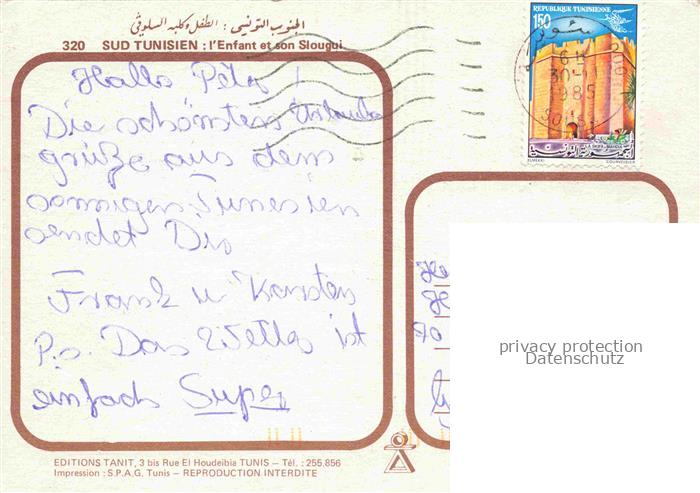 الجنوب التونسي : الطفل وكلبه السلوقي
320 SUD TUNISIEN : l'Enfant et son Slougui
REPUBLIQUE TUNISIENNE
150
30-11
1985
ELMEKKI COURVOISIER
Hallo Peter!
Die schönsten Urlaubs
grüße aus dem
sonnigen Tunesien
sendet Dir
Frank u. Karsten
P.S. Das Wetter ist
einfach Super
He
70
privacy protection
Datenschutz
EDITIONS TANIT, 3 bis Rue El Houdeibia TUNIS – Tél. : 255.856
Impression : S.P.A.G. Tunis – REPRODUCTION INTERDITE